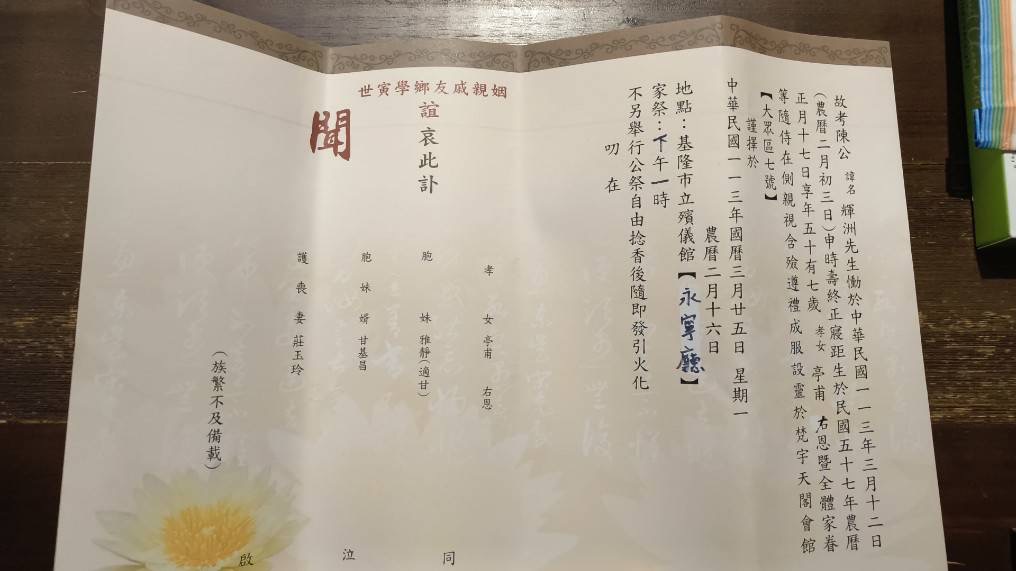 故考陳公諱名輝洲先生慟於中華民國一一三年三月十二日
(農曆二月初三日)申時壽終正寢距生於民國五十七年農曆
正月十七日享年五十有七歲 孝女 亭甫 右恩暨全體家眷
等隨侍在側親視含殮遵禮成服設靈於梵宇天閣會館
【大眾區七號】
謹擇於
中華民國一一三年國曆三月廿五日 星期一
農曆二月十六日
地點:基隆市立殯儀館【永寧廳】
家祭:下午一時
不另舉行公祭自由捻香後隨即發引火化
叨在
姻親戚友鄉學寅世
誼哀此訃
聞
孝女 亭甫 右恩
胞妹 雅靜(適甘)
胞妹婿 甘基昌
護喪妻 莊玉玲
(族繁不及備載)
同 泣 啟